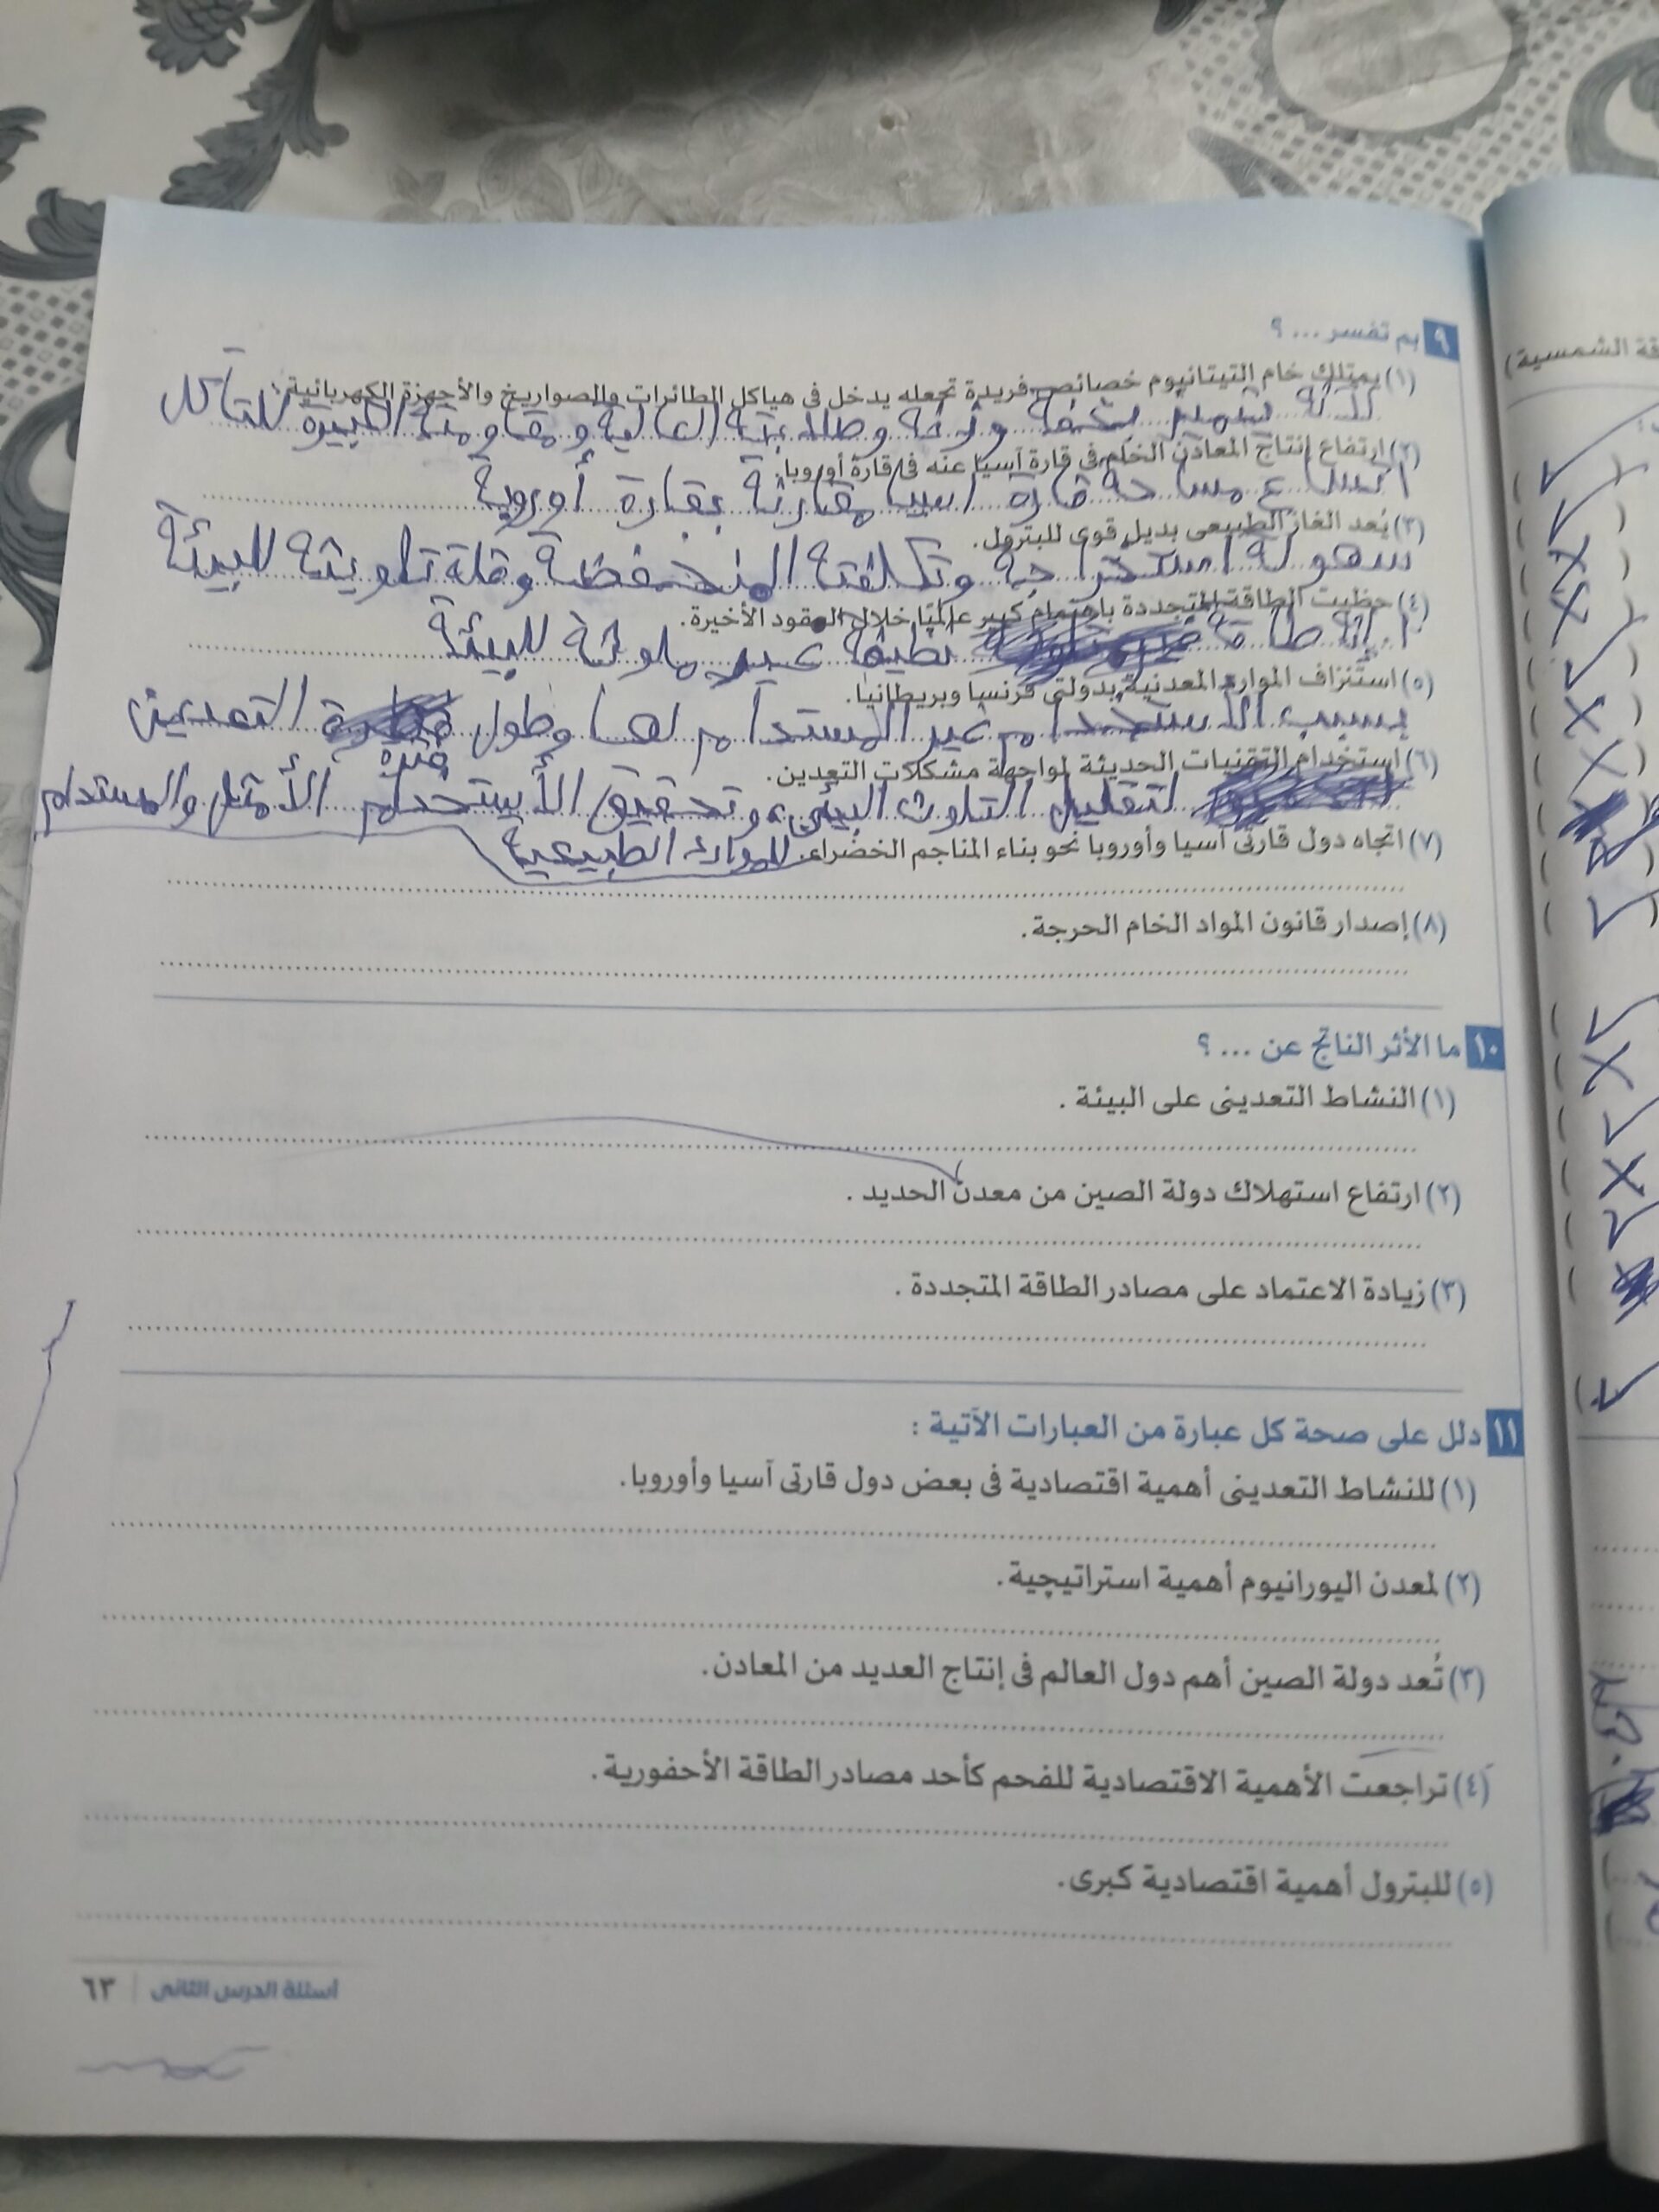 ٩ بم تفسر ... ؟
(١) يمتلك خام التيتانيوم خصائص فريدة تجعله يدخل فى هياكل الطائرات والصواريخ والأجهزة الكهربائية.
لأنه يتميز بخفة وزنه وصلابته العالية ومقاومته الكبيرة للتآكل
(٢) ارتفاع إنتاج المعادن الخام فى قارة آسيا عنه فى قارة أوروبا.
اتساع مساحة قارة اسيا مقارنة بقارة أوروبية
(٣) يُعد الغاز الطبيعى بديل قوى للبترول.
سهولة استخراجه وتكلفته المنخفضة وقلة تلويثه للبيئة
(٤) حظيت الطاقة المتجددة باهتمام كبير عالميًا خلال العقود الأخيرة.
لأنها طاقة نظيفة غير ملوثة للبيئة
(٥) استنزاف الموارد المعدنية بدولتى فرنسا وبريطانيا.
بسبب الاستخدام غير المستدام لها وطول فترة التعدين
(٦) استخدام التقنيات الحديثة لمواجهة مشكلات التعدين.
لتقليل التلوث البيئى وتحقيق الأستخدام الأمثل والمستدام
للموارد الطبيعية
(٧) اتجاه دول قارتى آسيا وأوروبا نحو بناء المناجم الخضراء.
(٨) إصدار قانون المواد الخام الحرجة.
١٠ ما الأثر الناتج عن ... ؟
(١) النشاط التعدينى على البيئة .
(٢) ارتفاع استهلاك دولة الصين من معدن الحديد .
(٣) زيادة الاعتماد على مصادر الطاقة المتجددة .
١١ دلل على صحة كل عبارة من العبارات الآتية :
(١) للنشاط التعدينى أهمية اقتصادية فى بعض دول قارتى آسيا وأوروبا.
(٢) لمعدن اليورانيوم أهمية استراتيجية.
(٣) تُعد دولة الصين أهم دول العالم فى إنتاج العديد من المعادن.
(٤) تراجعت الأهمية الاقتصادية للفحم كأحد مصادر الطاقة الأحفورية.
(٥) للبترول أهمية اقتصادية كبرى.
أسئلة الدرس الثانى | ٦٣
الشمسية)